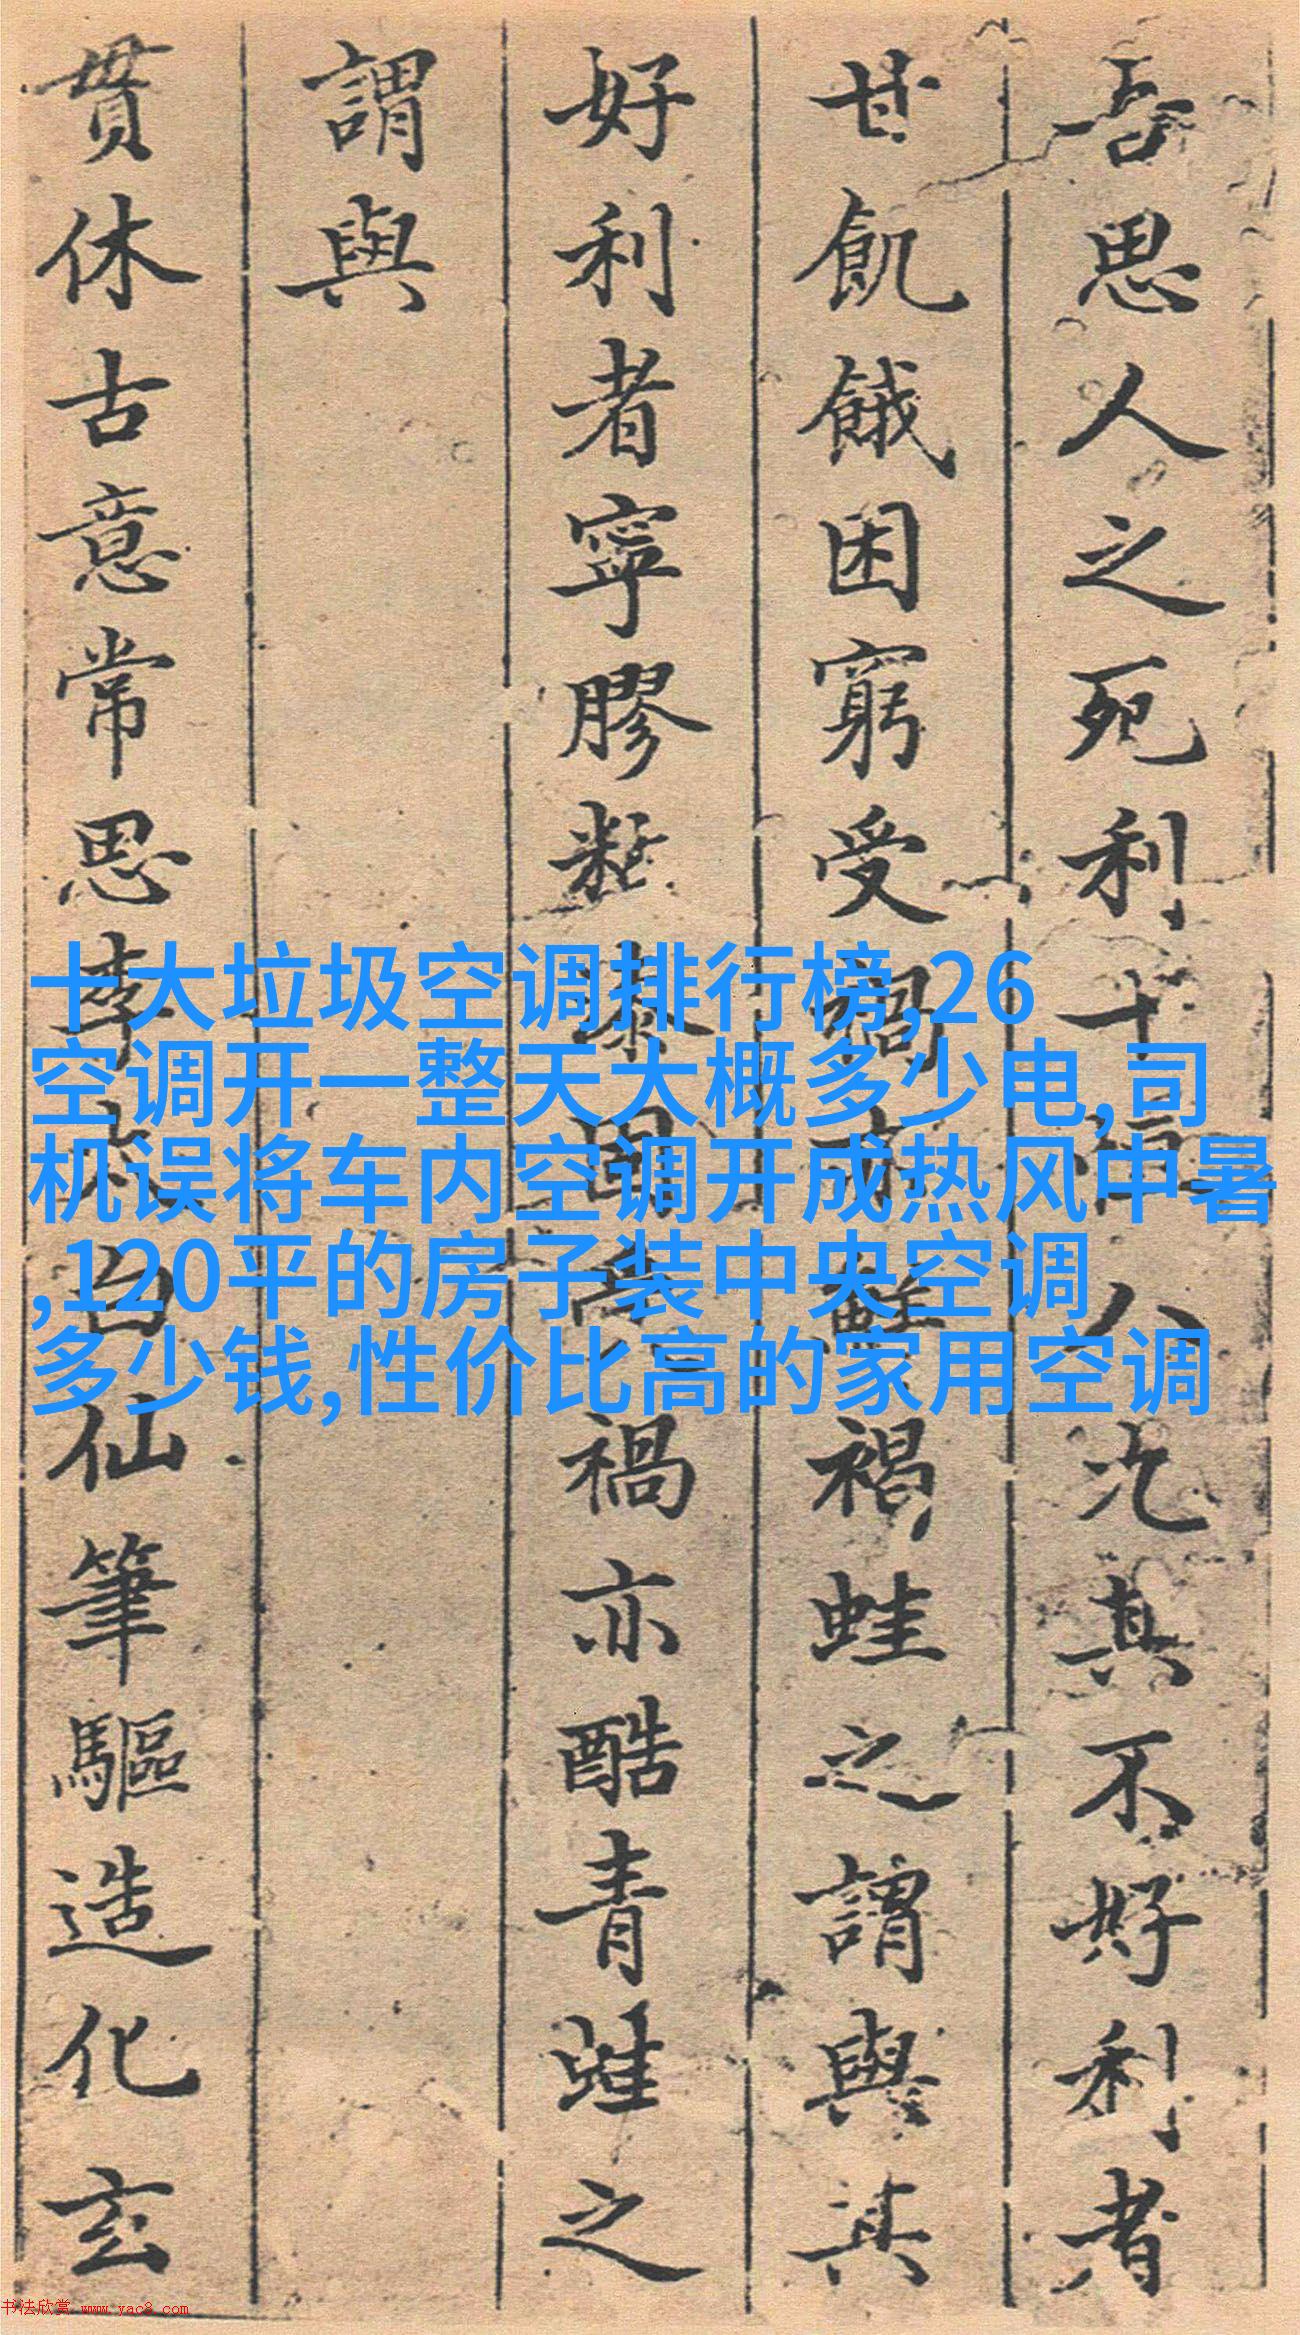 吾思人之死利十恒八其不好利者
甘飢餓困窮受禍亦鮮褐蛙之謂與其
好利者寧膠粘漆固禍亦酷青蛙之
謂與
貫休古意常思李太白仙筆驅造化玄
十大垃圾空调排行榜,26
空调开一整天大概多少电,司
机误将车内空调开成热风中暑
,120平的房子装中央空调
多少钱,性价比高的家用空调
书法欣赏 www.yac8.com